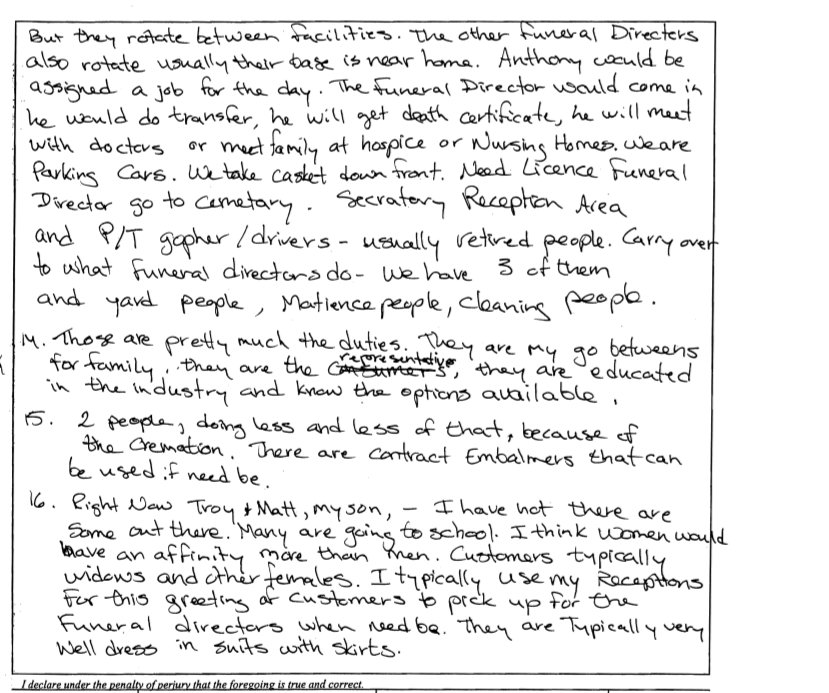 But they rotate between facilities. The other Funeral Directors
also rotate usually their base is near home. Anthony would be
assigned a job for the day. The Funeral Director would come in
he would do transfer, he will get death certificate, he will meet
with doctors or meet family at hospice or Nursing Homes. We are
Parking Cars. We take casket down front. Need Licence Funeral
Director go to Cemetary. Secratary Reception Area
and P/T gopher / drivers - usually retired people. Carry over
to what funeral directors do - We have 3 of them
and yard people, Matience people, Cleaning people.
14. Those are pretty much the duties. They are my go betweens
for family, they are the representative, they are educated
in the industry and know the options available.
15. 2 people, doing less and less of that, because of
the Cremation. There are contract Embalmers that can
be used if need be.
16. Right Now Troy & Matt, my son, - I have not there are
Some out there. Many are going to school. I think women would
have an affinity more than men. Customers typically
widows and other females. I typically use my Receptions
for this greeting of customers to pick up for the
Funeral directors when need be. They are Typically very
Well dress in suits with skirts.
I declare under the penalty of perjury that the foregoing is true and correct.